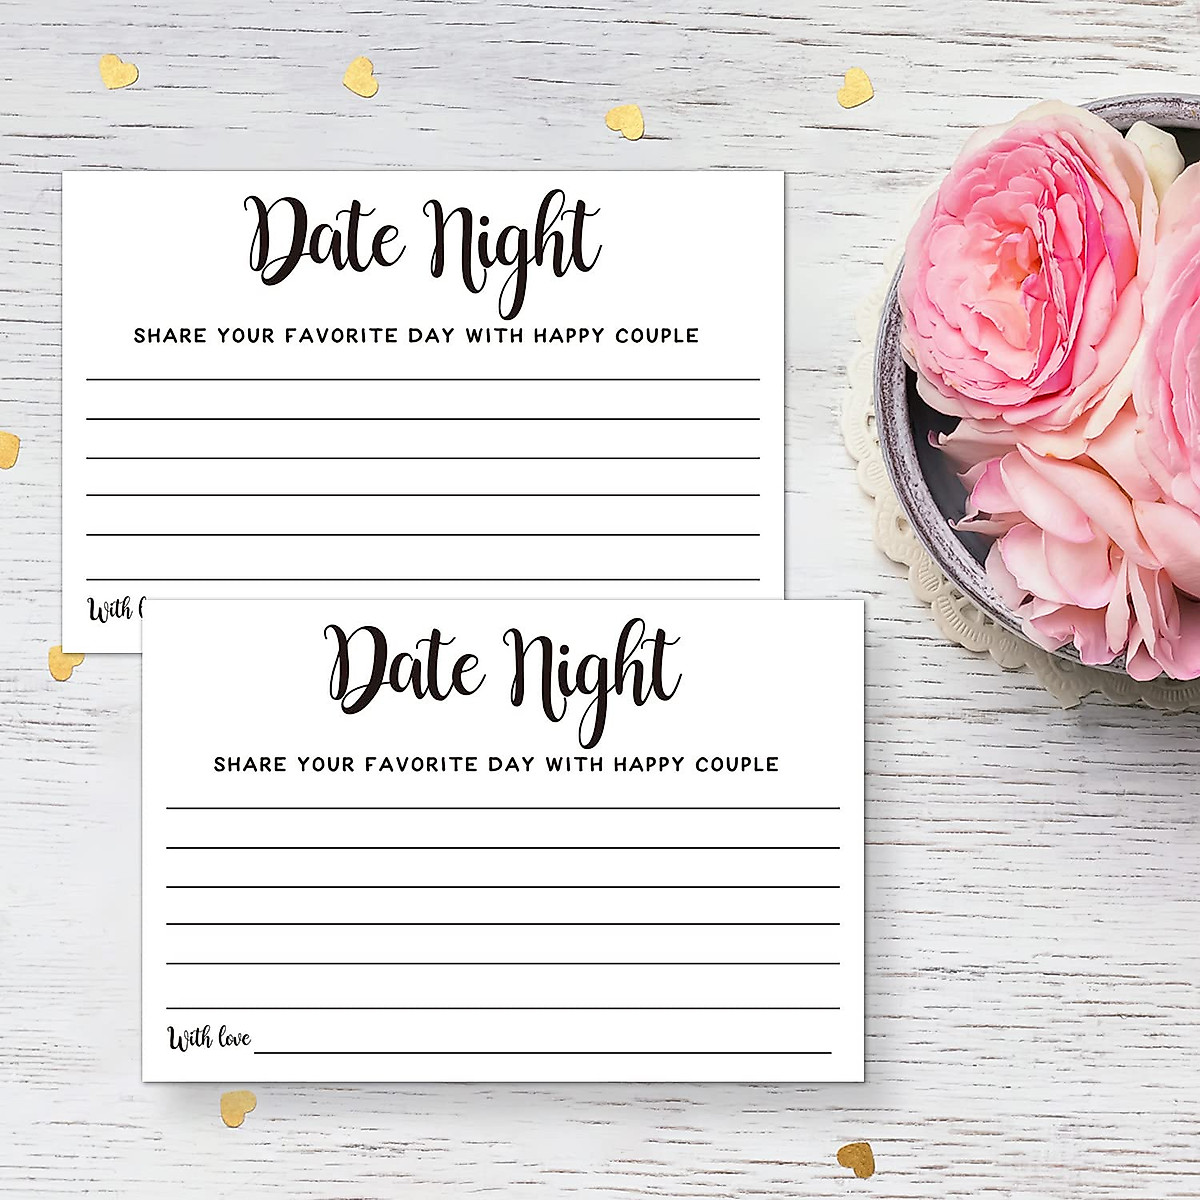 Date Night
SHARE YOUR FAVORITE DAY WITH HAPPY COUPLE
With
Date Night
SHARE YOUR FAVORITE DAY WITH HAPPY COUPLE
With love